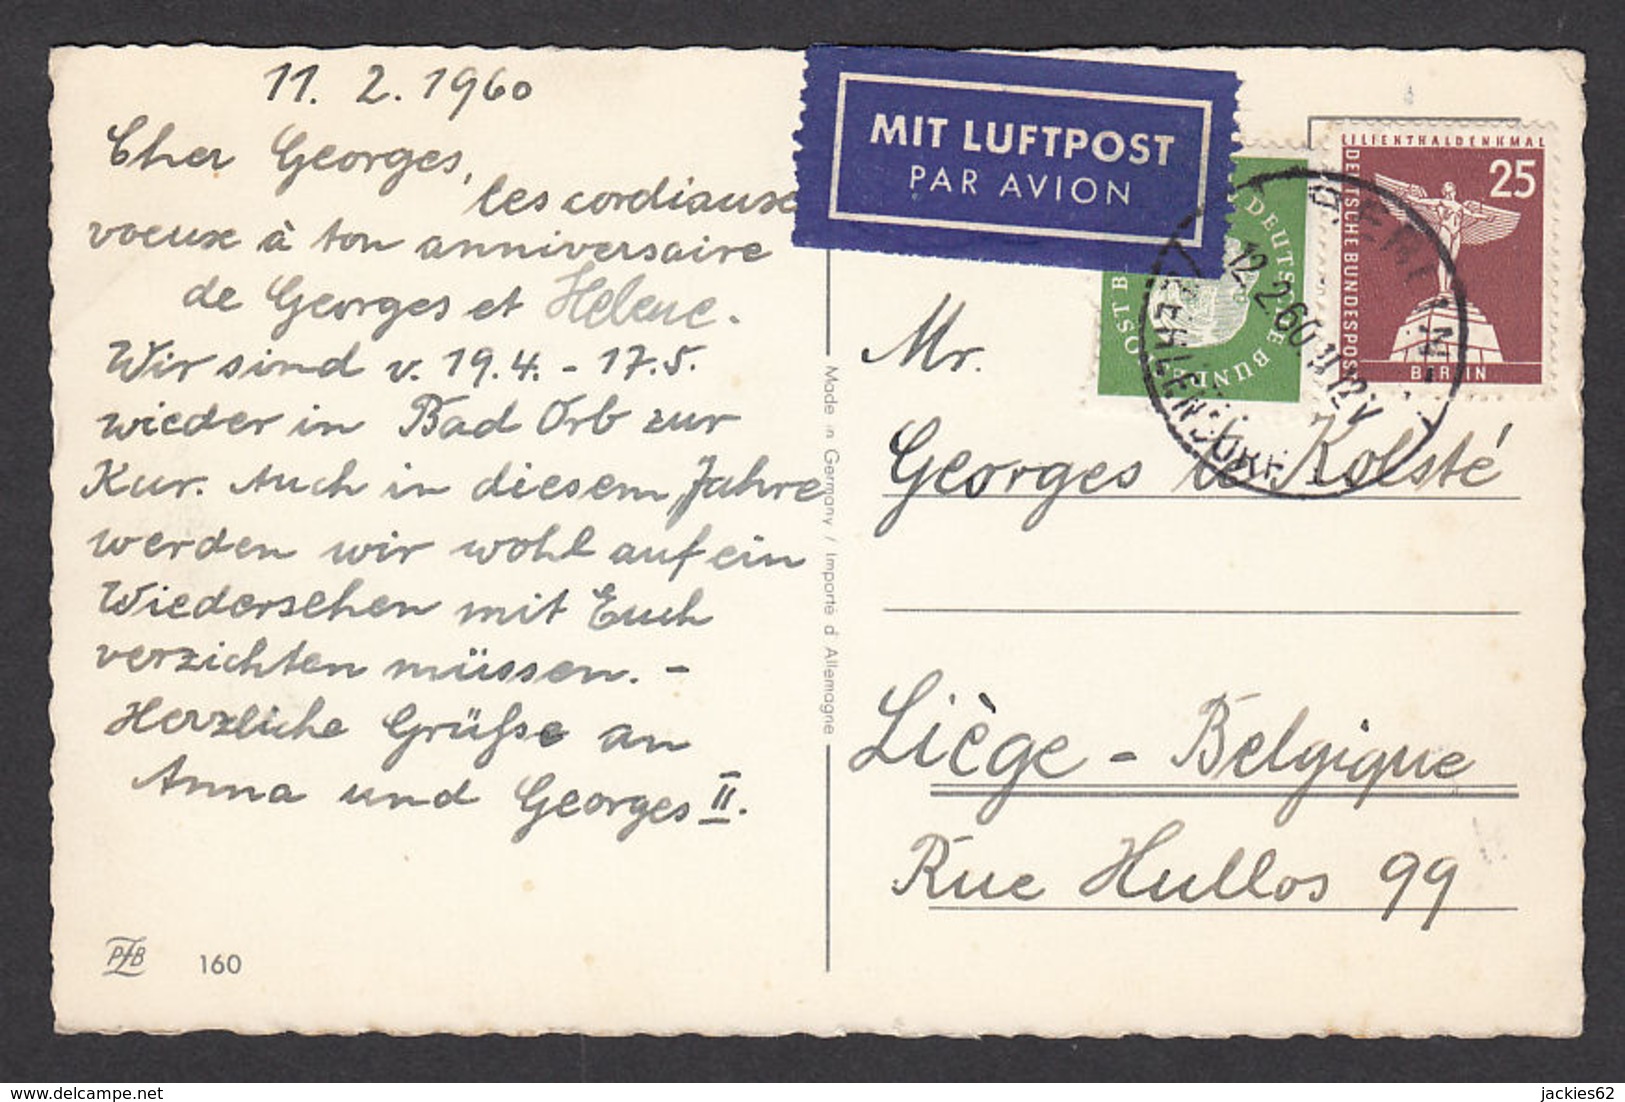 11. 2. 1960
Cher Georges,
les cordiaux
voeux à ton anniversaire
de Georges et Helene.
Wir sind v. 19.4. - 17.5.
wieder in Bad Orb zur
Kur. Auch in diesem Jahre
werden wir wohl auf ein
Wiedersehen mit Euch
verzichten müssen. -
Herzliche Grüße an
Anna und Georges II.
PFB 160
Made in Germany / Importé d Allemagne
MIT LUFTPOST
PAR AVION
DEUTSCHE BUNDESPOST B
LILIENTHALDENKMAL
25
DEUTSCHE BUNDESPOST
BERLIN
BERLIN-
12.2.60
Mr.
Georges Kolsté
Liège - Belgique
Rue Hullos 99
jackies62